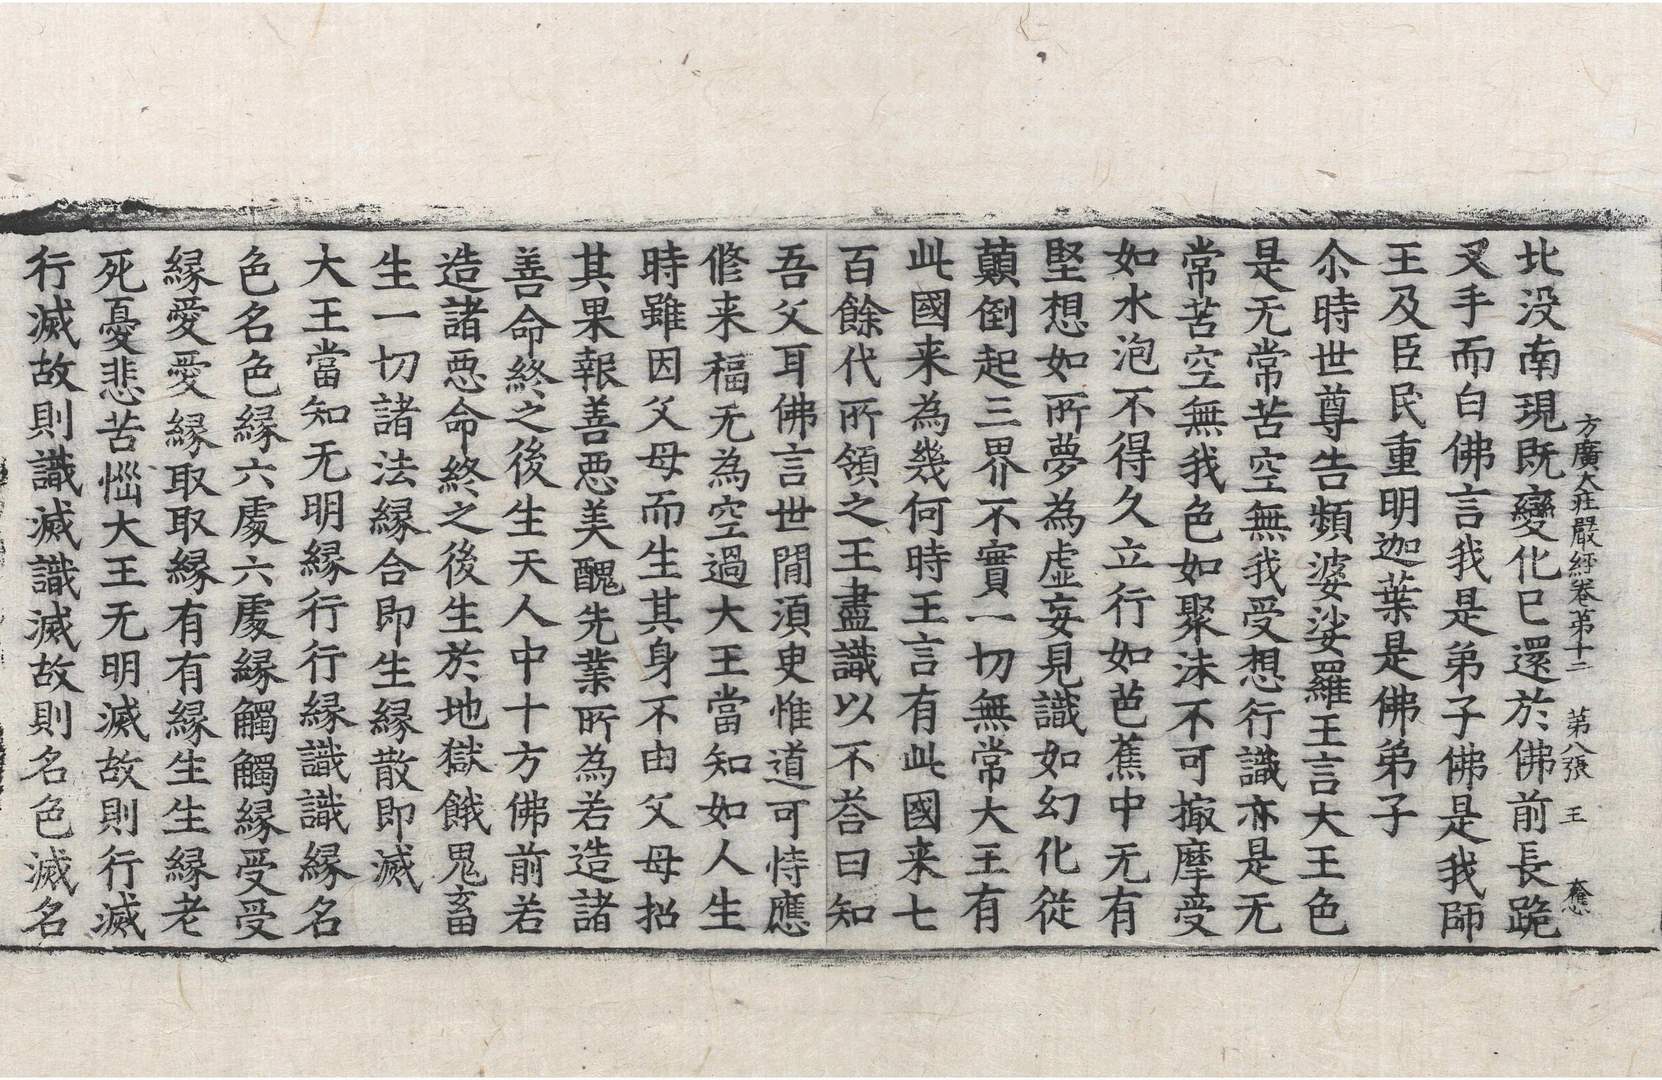 方廣大莊嚴經卷第十二　第八張　王
北没南現旣變化已還於佛前長跪
叉手而白佛言我是弟子佛是我師
王及臣民重明迦葉是佛弟子
尒時世尊告頻婆娑羅王言大王色
是无常苦空無我受想行識亦是无
常苦空無我色如聚沫不可撮摩受
如水泡不得久立行如芭蕉中无有
堅想如所夢為虛妄見識如幻化從
顚倒起三界不實一切無常大王有
此國来為幾何時王言有此國来七
百餘代所領之王盡識以不荅曰知
吾父耳佛言世閒須臾惟道可恃應
修来福无為空過大王當知如人生
時雖因父母而生其身不由父母招
其果報善惡美醜先業所為若造諸
善命終之後生天人中十方佛前若
造諸惡命終之後生於地獄餓鬼畜
生一切諸法縁合即生縁散即滅
大王當知无明縁行行縁識識縁名
色名色縁六處六處縁觸觸縁受受
縁愛愛縁取取縁有有縁生生縁老
死憂悲苦惱大王无明滅故則行滅
行滅故則識滅識滅故則名色滅名